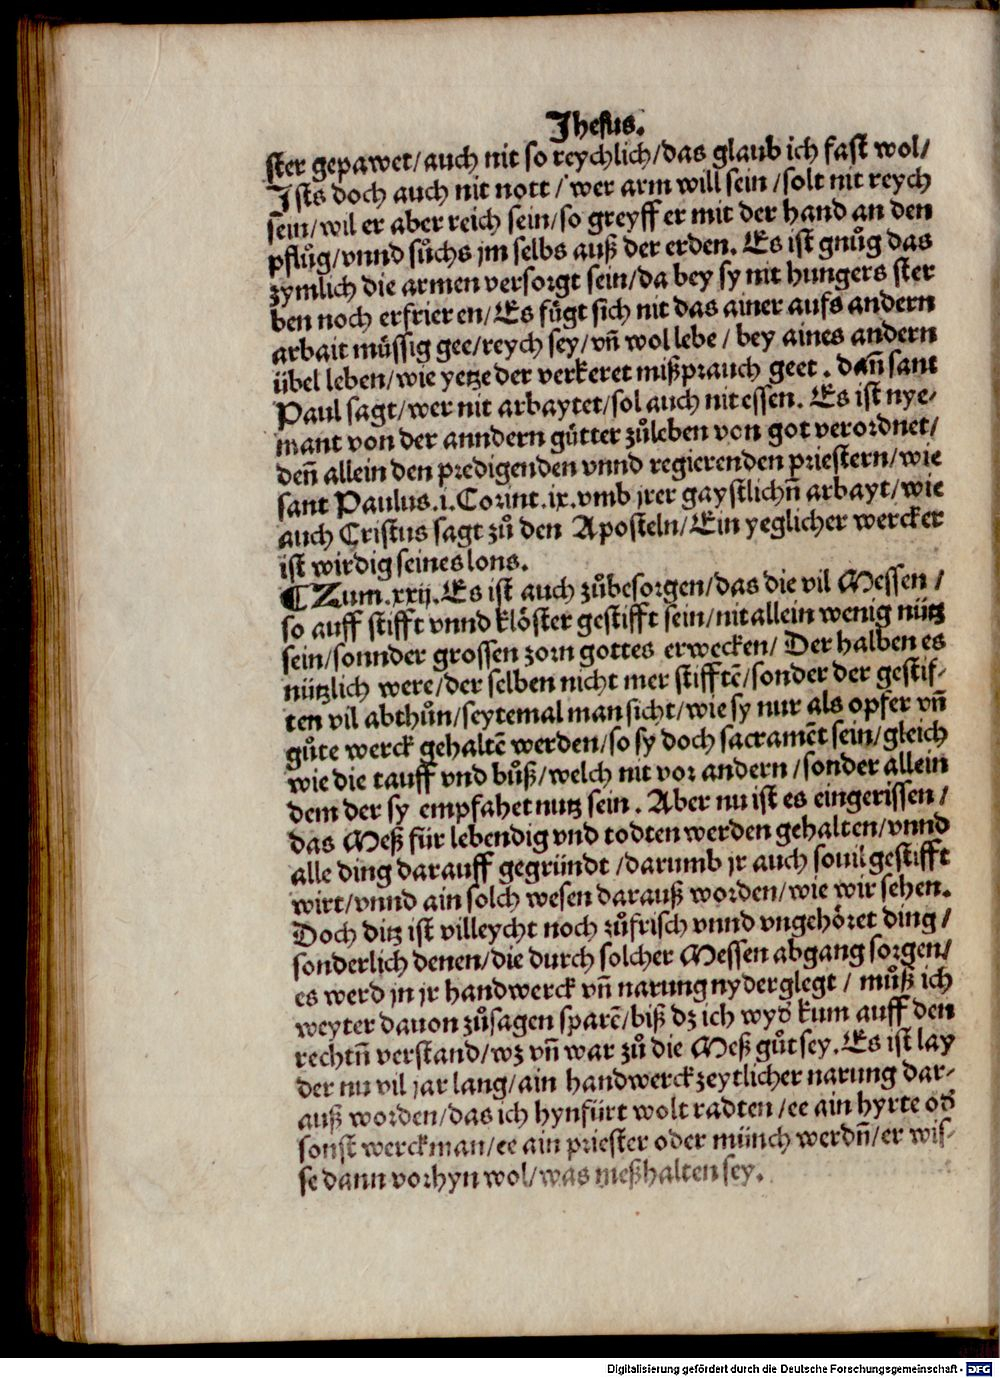 Jhesus.
ster gepawet/auch nit so reychlich/das glaub ich fast wol/
Ists doch auch nit nott/wer arm will sein/solt nit reych
sein/wil er aber reich sein/so greyff er mit der hand an den
pflůg/vnnd sůchs jm selbs auß der erden. Es ist gnůg das
zymlich die armen versorgt sein/da bey sy nit hungers ster
ben noch erfrieren/Es fůgt sich nit das ainer aufs andern
arbait můssig gee/reych sey/vñ wol lebe/bey aines andern
übel leben/wie yetze der verkeret mißprauch geet. dañ sant
Paul sagt/wer nit arbaytet/sol auch nit essen. Es ist nye-
mant von der anndern gůtter zůleben von got verordnet/
deñ allein den predigenden vnnd regierenden priestern/wie
sant Paulus.i.Corint.ix.vmb jrer gaystlichñ arbayt/wie
auch Cristus sagt zů den Aposteln/Ein yeglicher wercker
ist wirdig seines lons.
¶Zum.xxij.Es ist auch zůbesorgen/das die vil Messen/
so auff stifft vnnd klöster gestifft sein/nit allein wenig nütz
sein/sonnder grossen zorn gottes erwecken/Der halben es
nützlich were/der selben nicht mer stifftē/sonder der gestif-
ten vil abthůn/seytemal man sicht/wie sy nur als opfer vñ
gůte werck gehaltē werden/so sy doch sacramēt sein/gleich
wie die tauff vnd bůß/welch nit vor andern/sonder allein
dem der sy empfahet nutz sein. Aber nu ist es eingerissen/
das Meß für lebendig vnd todten werden gehalten/vnnd
alle ding darauff gegründt/darumb jr auch souil gestifft
wirt/vnnd ain solch wesen darauß worden/wie wir sehen.
Doch ditz ist villeycht noch zůfrisch vnnd vngehöret ding/
sonderlich denen/die durch solcher Messen abgang sorgen/
es werd jn jr handwerck vñ narung nyderglegt/můß ich
weyter dauon zůsagen sparē/biß dz ich wyď kum auff den
rechtñ verstand/wz vñ war zů die Meß gůt sey. Es ist lay
der nu vil jar lang/ain handwerck zeytlicher narung dar-
auß worden/das ich hynfürt wolt radten/ee ain hyrte oď
sonst werckman/ee ain priester oder münch werdñ/er wis-
se dann vorhyn wol/was meßhalten sey.
Digitalisierung gefördert durch die Deutsche Forschungsgemeinschaft - DFG